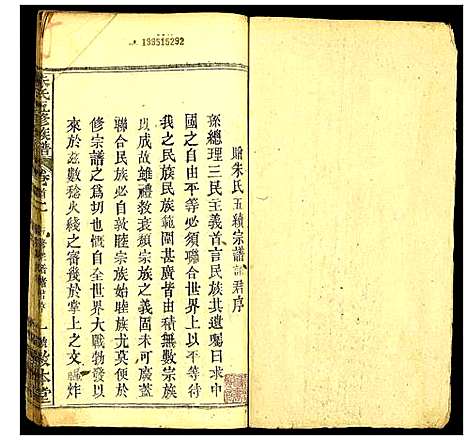 195515292
贈朱氏五續宗譜諸君序
孫總理三民主義首言民族其遺囑求中
國之自由平等必須聯合世界上以平等待
我之民族民族範圍甚廣皆由積無數宗族
以成故雖禮教衰頹宗族之義固未可廢蓋
聯合民族必自敦睦宗族始睦族尤莫便於
修宗譜之爲切也慨自全世界大戰勃發以
來於玆數稔火綫之審幾於掌上之文 炸
朱氏五修族譜
卷首
敦本堂